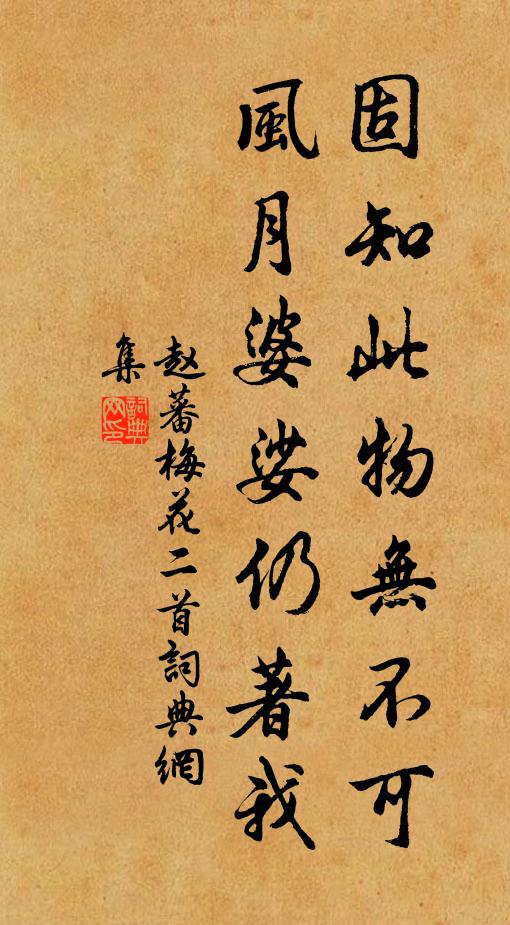 固知此物無不可
風月婆娑仍著我
赵蕃梅花二首詞典網
集
詞典網印